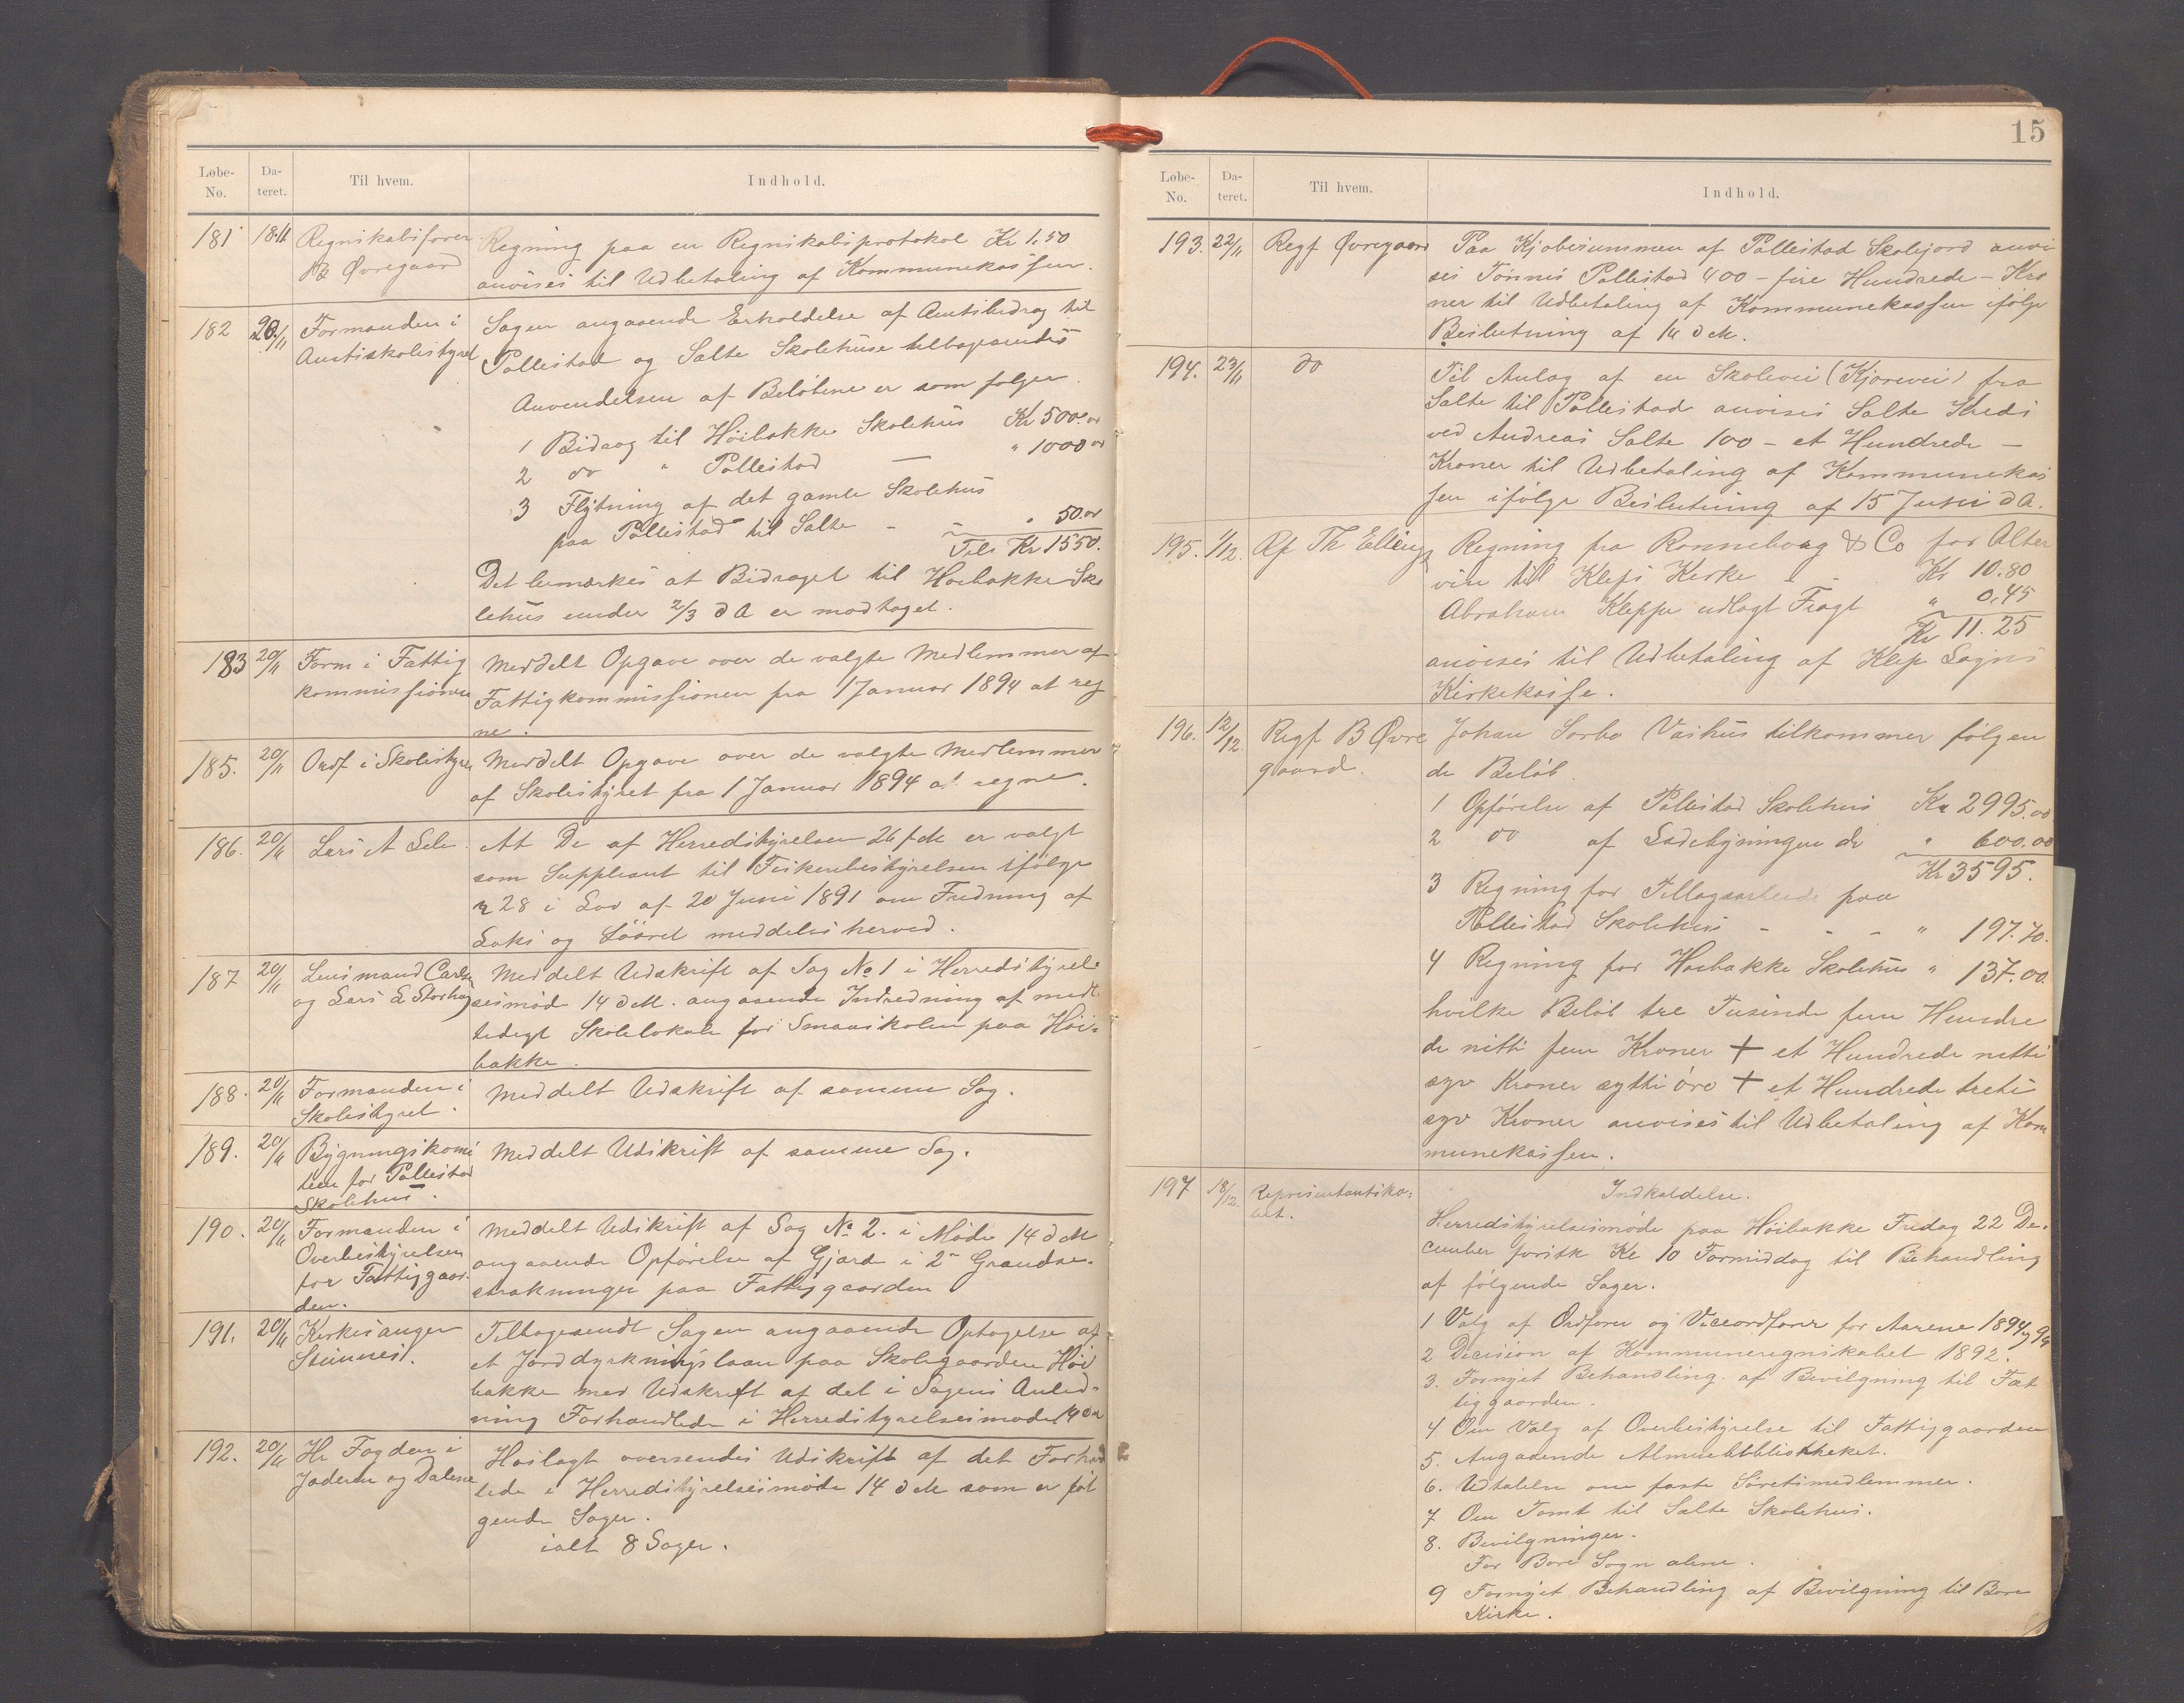 Løbe-No. Da-teret. Til hvem. Indhold.
181 18/11 Regnskabsfører B Øvregaard
Regning paa en Regnskabsprotokol Kr 1.50
anvises til Udbetaling af Kommunekassen.
182 20/11 Formanden i Amtsskolestyret
Sagen angaaende Erholdelse af Amtsbidrag til
Pollestad og Salte Skolehuse tilbagesendes
Anvendelsen af Beløbene er som følger
1 Bidrag til Höibakke Skolehus Kr 500.00
2 do " Pollestad — " 1000 00
3 Flytning af det gamle Skolehus
paa Pollestad til Salte - - " 50.00
Tils Kr 1550.
Det bemærkes at Bidraget til Høibakke Sko
lehus under 2/3 d A er modtaget.
183 20/11 Form i Fattig kommissionen
Meddelt Opgave over de valgte Medlemmer af
Fattigkommissionen fra 1 Januar 1894 at reg
ne.
185. 20/11 Ordf i Skolestyret
Meddelt Opgave over de valgte Medlemmer
af Skolestyret fra 1 Januar 1894 at regne.
186. 20/11 Lars A Sele.
At De af Herredstyrelsen 26 f M er valgt
som Suppleant til Fiskeribestyrelsen ifølge
§ 28 i Lov af 20 Juni 1891 om Fredning af
Laks og Söøret meddeles herved.
187 20/11 Lensmand Carlsen og Lars L Storhaug
Meddelt Udskrift af Sag No 1 i Herredstyrel-
sesmöde 14 d M. angaaende Indredning af midl
tidigt Skolelokale for Smaaskolen paa Höi-
bakke.
188. 20/11 Formanden i Skolestyret.
Meddelt Udskrift af samme Sag.
189. 20/11 Bygningskomi teen for Pollestad Skolehus.
Meddelt Udskrift af samme Sag.
190. 20/11 Formanden i Overbestyrelsen for Fattiggaar den.
Meddelt Udskrift af Sag No 2. i Möde 14 d M
angaaende Opførelse af Gjærde i 2de Grændse-
strækninger paa Fattiggaarden
191. 20/11 Kirkesanger Steinnes.
Tilbagesendt Sagen angaaende Optagelse af
et Jorddyrkningslaan paa Skolegaarden Höi
bakke med Udskrift af det i Sagens Anled-
ning Forhandlede i Herredstyrelsesmøde 14 d M
192. 20/11 Hr Fogden i Jæderen og Dalene
Hoslagt oversendes Udskrift af det Forhand
lede i Herredstyrelsesmöde 14 d M som er føl
gende Sager.
ialt 8 Sager.
15
Løbe-No. Da-teret. Til hvem. Indhold.
193. 22/11 Regf Øvregaard
Paa Kjøbesummen af Pollestad Skolejord anvi
ses Tønnes Pollestad 400 - fire Hundrede - Kro
ner til Udbetaling af Kommunekassen ifølge
Beslutning af 14 d M.
194. 23/11 do
Til Anlæg af en Skolevei (Kjørevei) fra
Salte til Pollestad anvises Salte Kreds
ved Andreas Salte 100 - et Hundrede -
Kroner til Udbetaling af Kommunekas
sen ifølge Beslutning af 15 Juni d A.
195. 1/12. Rf Th Ellings
Regning fra Ronneborg & Co for Alter
vin til Kleps Kirke - - Kr 10.80
Abraham Kleppe udlagt Fragt " 0.45
Kr 11.25
anvises til Udbetaling af Klep Sogns
Kirkekasse.
196. 12/12. Regf B Øvre gaard.
Johan Sorbo Vashus tilkommer følgen
de Beløb.
1 Opførelse af Pollestad Skolehus Kr 2995.00
2 do af Ladebygningen do " 600.00
Kr 3595.
3 Regning for Tillægsarbeide paa
Pollestad Skolehus - - - " 197.70.
4 Regning for Høibakke Skolehus " 137.00
hvilke Beløb tre Tusinde fem Hundre
de nitti fem Kroner + et Hundrede nitti
syv Kroner sytti øre + et Hundrede treti
syv Kroner anvises til Udbetaling af Kom
munekassen.
197 18/12. Representantsko- bet.
Indkaldelse.
Herredstyrelsesmøde paa Höibakke Fredag 22 De-
cember førstk Kl 10 Formiddag til Behandling
af følgende Sager.
1 Valg af Ordfører og Viceordfører for Aarene 1894 og 95
2 Decision af Kommuneregnskabet 1892.
3. Fornyet Behandling. af Bevilgning til Fat
tiggaarden.
4 Om Valg af Overbestyrelse til Fattiggaarden
5. Angaaende Almuebibliotheket.
6. Udtalelse om faste Skiøretsmedlemmer.
7 Om Tomt til Salte Skolehus.
8. Bevilgninger.
For Bore Sogn alene.
9 Fornyet Behandling af Bevilgning til Bore
Kirke.